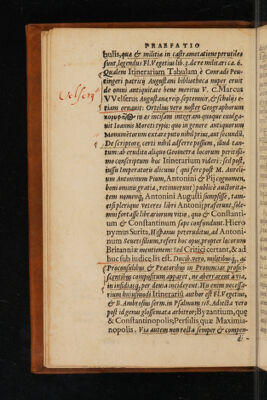 PRAEFATIO
bulis, quæ & militiæ in castrametationi perutiles
sunt, legendus Fl. Vegetius lib. 3. de re milit. ca. 6.
Qualem Itinerarium Tabulam è Conradi Peu-
tingeri patricij Augustani bibliotheca nuper eruit
de omni antiquitate bene meritus V. c. Marcus
Velserus
VVelserus Augustanæ reip. septemvir, & scholijs e-
tiam ornauit: Ortelius vero noster Geographorum
ea est incisam integram quoque euulga-
uit Ioannis Moreti typis; quo in genere antiquorum
Monumentorum extare puto nihil prius, aut secundū.
De scriptore, certi nihil adferre possum, illud tan-
tum: ab erudito aliquo Geometra locorum peritissi-
mo conscriptum hoc Itinerarium videri: sed post,
iussu Imperatoris alicuius (qui fere post M. Aureli-
um Antoninum Pium, Antonini & Pij cognomen,
boni ominis gratia, retinuerunt) publicâ auctorita-
tem nomenq́, Antonini Augusti sumpsisse, tam-
etsi plerique veteres libri Antonij præferunt, soleo
mni fortasse librariorum vitio, qua & Constanti-
um & Constantinum sæpe confundunt. Hiero-
nymus Surita, Hispanus peteruditus, ad Antoni-
num Neuensillum, refert hoc opus, propter locorum
Britanniæ mentionem: sed Critici certant, & ad
huc sub iudice lis est. Ducib. vero, militibusq́;, ac
Proconsulibus & Prætoribus in Prouincias profici-
scentibus compositum apparet, ne aberrarent à via,
in insidiasq́, per deuia inciderent. His enim necessa-
rium huiusmodi Itinerariū author est Fl. Vegetius,
& B. Ambrosius serm. in Psalmum 118. Adiecta vero
post id genus glossemata arbitror; Byzantium, quę
& Constantinopolis; Persilis quæ Maximia-
nopolis. Via autem non recta semper & compen-
di-